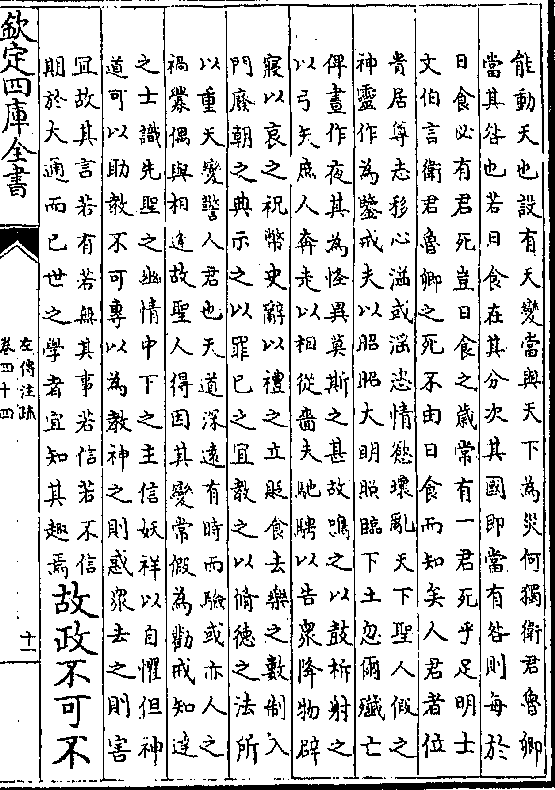 能動天也設有天變當與天下為災何獨衛君魯卿
當其咎也若日食在其分次其國即當有咎則每於
日食必有君死豈日食之歲常有一君死乎足明士
文伯言衛君魯卿之死不由日食而知矣人君者位
貴居尊志移心溢或滛恣情慾壞亂天下聖人假之
神靈作為鑒戒夫以昭昭大明照臨下土忽爾殲亡
俾晝作夜其為怪異莫斯之甚故鳴之以鼓柝射之
以弓矢庶人奔走以相從嗇夫馳騁以告衆降物辟
寢以哀之祝幣史辭以禮之立貶食去樂之數制入
門廢朝之典示之以罪已之宜教之以脩德之法所
以重天變警人君也天道深遠有時而驗或亦人之
禍釁偶與相逢故聖人得因其變常假為勸戒知達
之士識先聖之幽情中下之主信妖祥以自懼但神
道可以助教不可專以為教神之則惑衆去之則害
宜故其言若有若無其事若信若不信
期於大通而已世之學者宜知其趣焉
故政不可不
欽定四庫全書
左傳注疏
卷四十四
十一